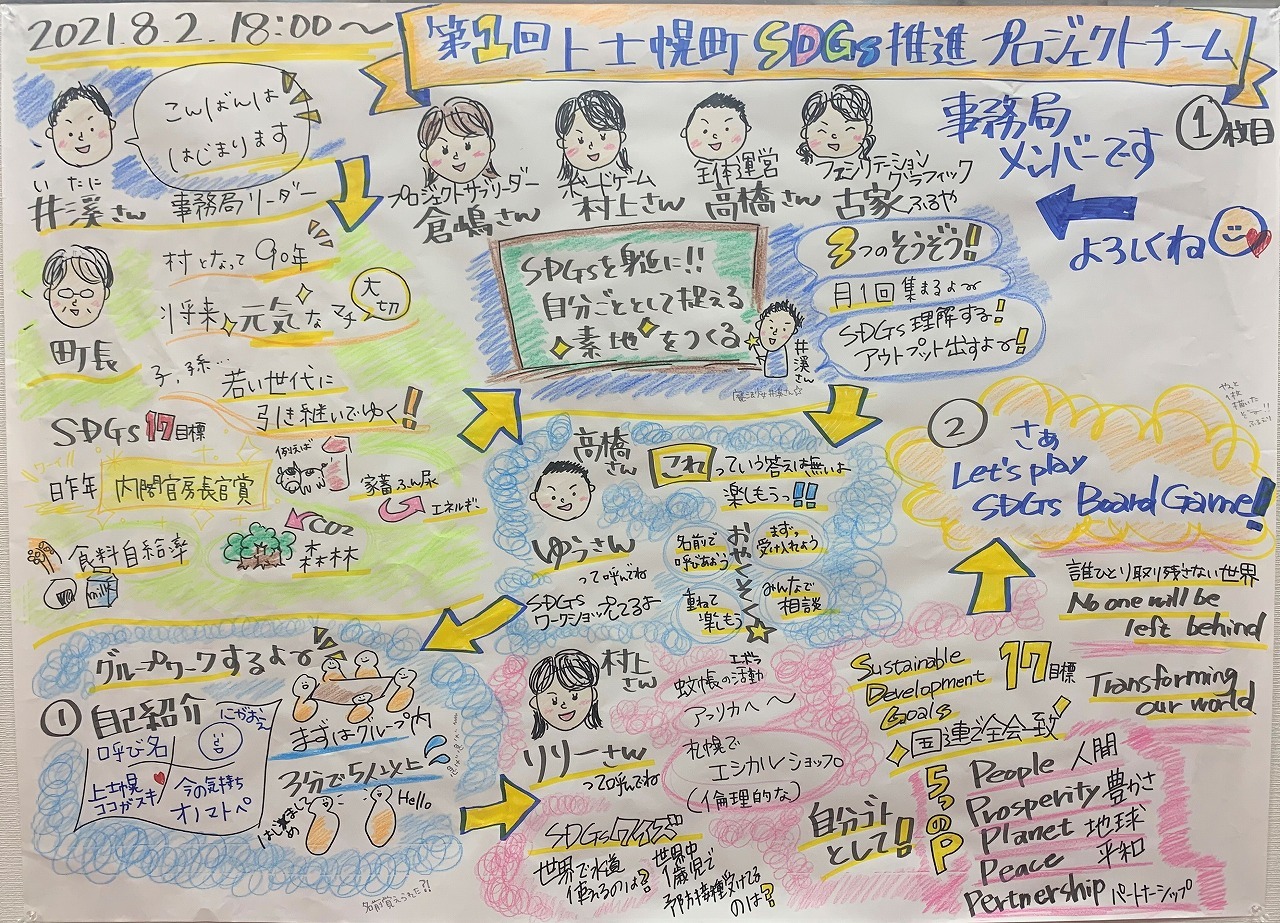 2021.8.2 18:00〜
第1回 上士幌町 SDGs 推進 プロジェクトチーム
①枚目
こんばんは
はじまります
いたに
井溪さん
事務局リーダー
プロジェクトサブリーダー
倉嶋さん
ボードゲーム
村上さん
全体運営
高橋さん
ファシリテーション
グラフィック
古家
ふるや
事務局
メンバーです
よろしくね
町長
村となって90年
将来 元気なマチ
大切
子、孫…
若い世代に
引き継いでゆく!!
SDGs 17目標
昨年
内閣官房長官賞
例えば
家畜ふん尿
エネルギー
食料自給率
milk
CO2
森林
SDGsを身近に!!
自分ごととして捉える
素地をつくる
井溪さん
3つのそうぞう!!
月1回集まるよ〜
SDGs 理解する!
アウトプット出すよ〜!
高橋さん
ゆうさん
って呼んでね
SDGs
ワークショップしてるよ
これっていう答えは無いよ
楽しもうっ!!
おやくそく
名前で
呼びあおう
まずっ
受け入れよう
重ねて
楽しもう
みんなで
相談
グループワークするよ〜
① 自己紹介
呼び名
にがおえ
上士幌
ココがスキ
今の気持ち
オノマトペ
まずはグループ内
3分で5人以上
はじめまして
Hello
名前覚えられた?!
村上さん
リリーさん
って呼んでね
蚊帳の活動
アフリカへ〜
札幌で
エシカルショップ
(倫理的な)
SDGsクイズ
世界で水道
使えるのは?
世界中
1歳児で
予防接種受けてる
のは?
自分ゴト
として!
Sustainable
Development
Goals
17目標
国連で全会一致
5つのP
People 人間
Prosperity 豊かさ
Planet 地球
Peace 平和
Pertnership パートナーシップ
誰ひとり取り残さない世界
No one will be
left behind
Transforming
our world
②
さぁ
Let's play
SDGs Board Game!